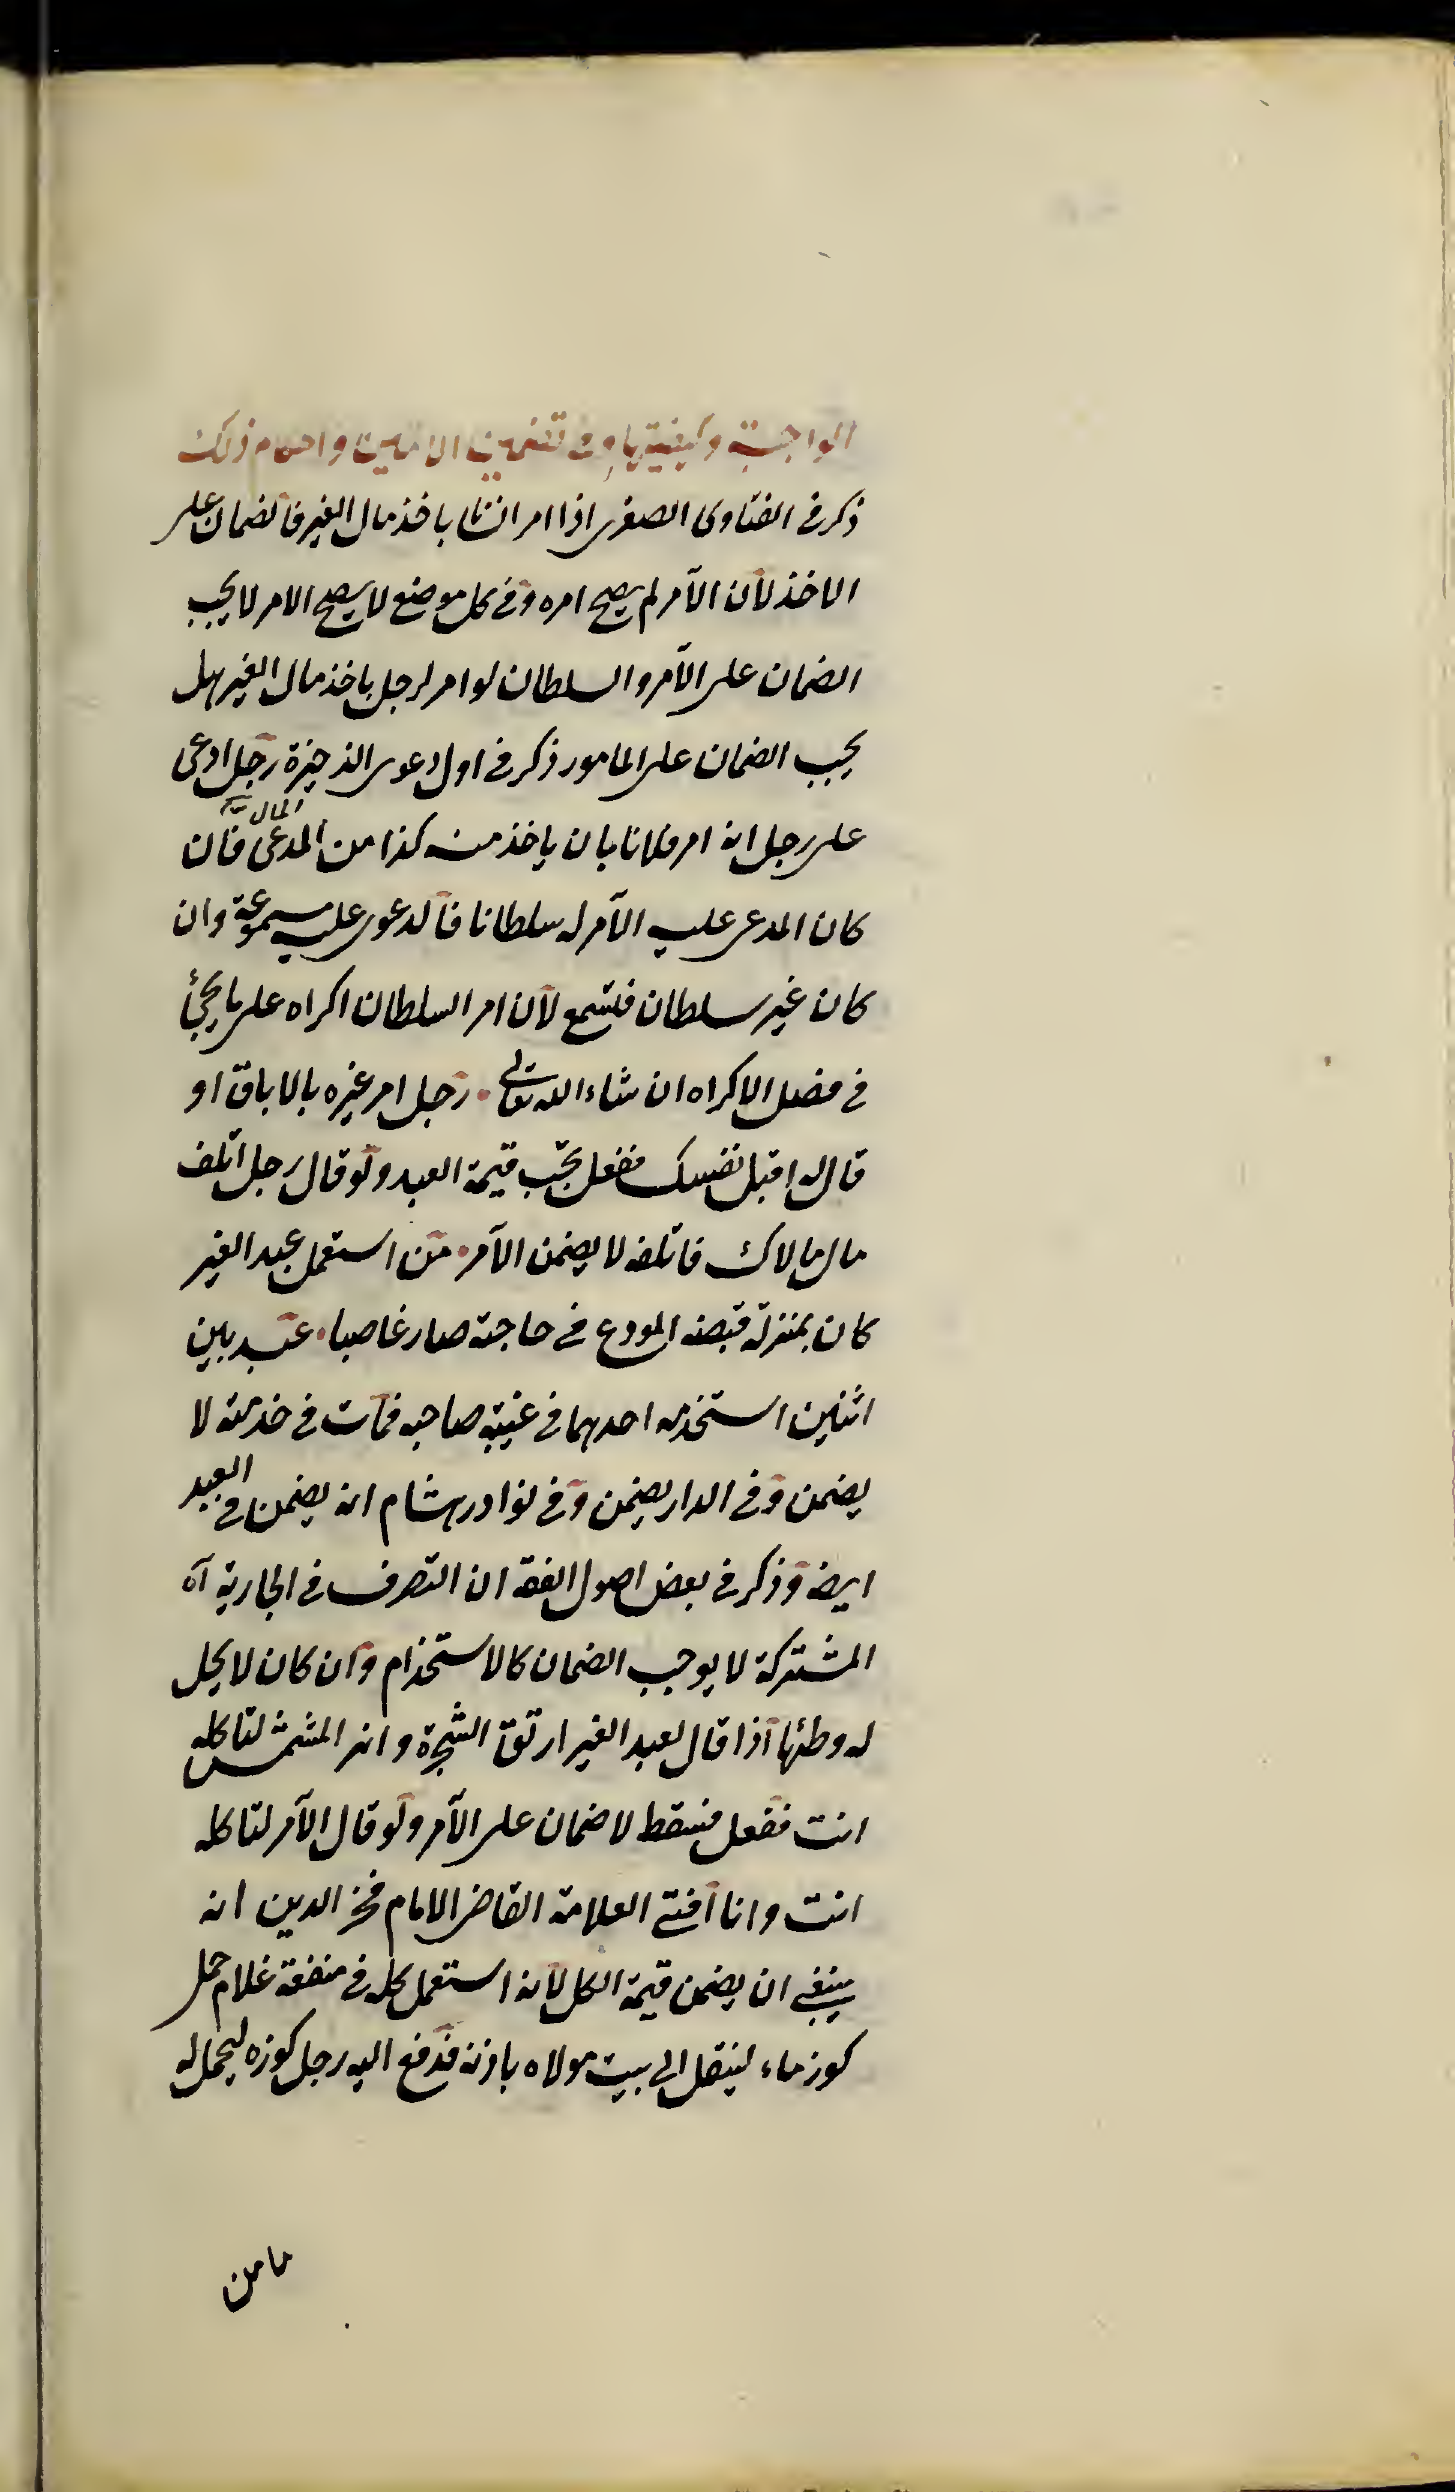 الواجبة وكيفيتها وفى تضمين الامين واحكام ذلك
ذكر فى الفتاوى الصغرى اذا امر انسانا باخذ مال الغير فالضمان على
الاخذ لان الآمر لم يصح امره وفى كل موضع لا يصح الامر لا يجب
الضمان على الآمر والسلطان لو امر لرجل باخذ مال الغير هل
يجب الضمان على المامور ذكر فى اول دعوى الذخيرة رجل ادعى
على رجل انه امر فلانا بان ياخذ منه كذا من المال المدعى فان
كان المدعى عليه الآمر له سلطانا فالدعوى عليه مسموعة وان
كان غير سلطان فلتسمع لان امر السلطان اكراه على ما يجئ
فى فصل الاكراه ان شاء الله تعالى رجل امر غيره بالاباق او
قال له اقتل نفسك ففعل يجب قيمة العبد ولو قال رجل اتلف
مال مالاك فاتلفه لا يضمن الآمر من استعمل عبد الغير
كان بمنزلة قبضه المودع فى حاجته صار غاصبا عبد بين
اثنين استخدمه احدهما فى غيبة صاحبه فمات فى خدمته لا
يضمن وفى الدار يضمن وفى نوادر هشام انه يضمن فى العبد
ايضا وذكر فى بعض اصول الفقه ان التصرف فى الجارية اه
المشتركة لا يوجب الضمان كالاستخدام وان كان لا يحل
له وطئها اذا قال لعبد الغير ارتق الشجرة وانثر المشمش لتاكله
انت ففعل فسقط لا ضمان على الآمر ولو قال الآمر لتاكله
انت وانا افتى العلامة القاضى الامام فخر الدين انه
ينبغى ان يضمن قيمة الكل لانه استعمل كله فى منفعة غلام حمل
كوز ماء لينقل الى بيت مولاه باذنه فدفع اليه رجل كوزه ليحمل له
ما من